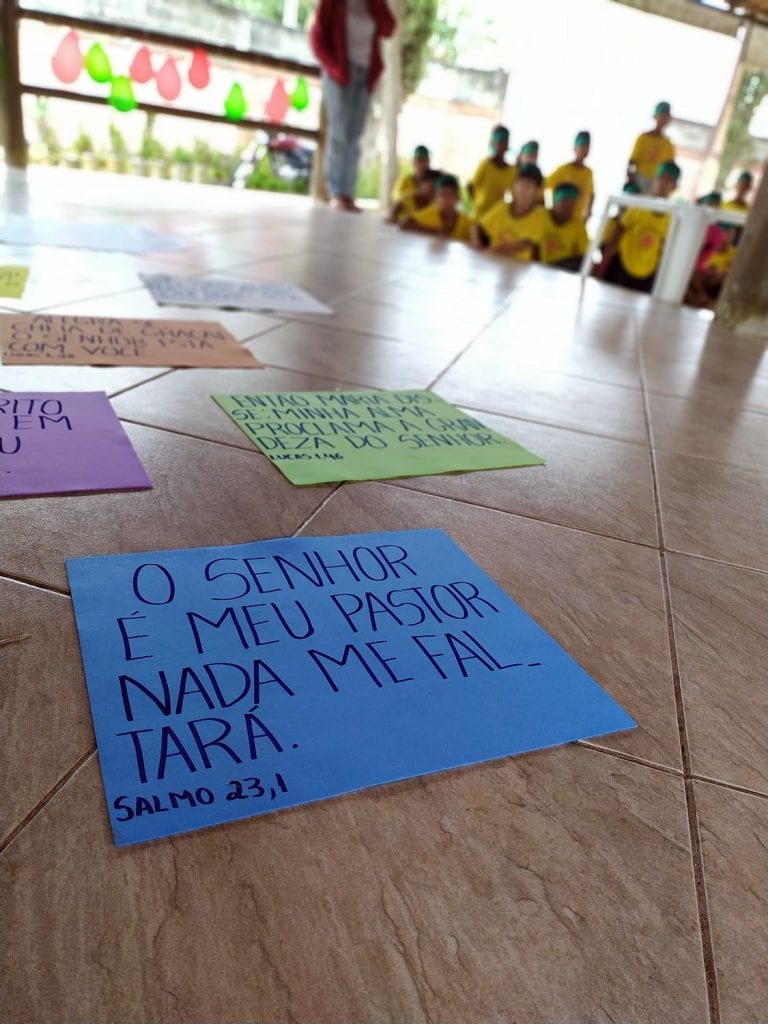 O SENHOR
É MEU PASTOR
NADA ME FAL_
TARÁ.
SALMO 23,1
ENTÃO MARIA DIS
SE: MINHA ALMA
PROCLAMA A GRAN
DEZA DO SENHOR.
LUCAS 1,46
RITO
EM
U
CHEIA DE GRAÇA!
O SENHOR ESTÁ
COM VOCÊ